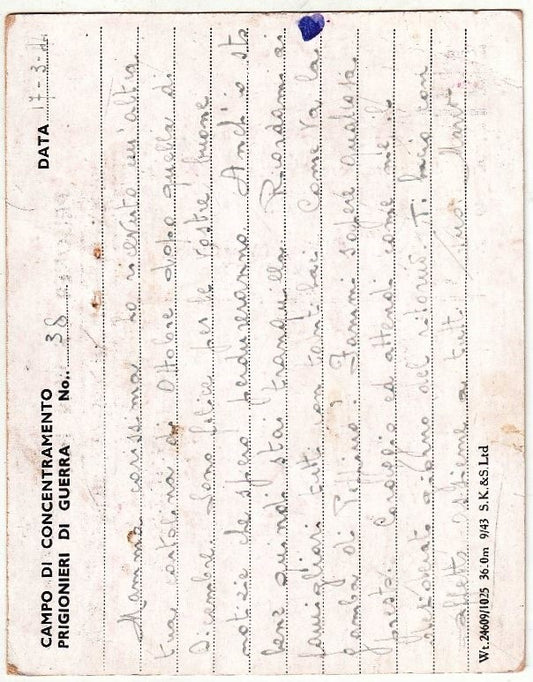 CAMPO DI CONCENTRAMENTO
PRIGIONIERI DI GUERRA No. 38 DATA 17-3-
Mamma carissima ho ricevuto un'altra
tua cartolina di Ottobre dopo quella di
Dicembre. Sono felice per le vostre buone
notizie che spero perdureranno. Anch'io sto
bene quindi stai tranquilla. Ricordami ai
famigliari tutti con tanti baci. Come va la
gamba di ? Fammi sapere qualcosa
presto. Coraggio ed attendi come me il
giorno del ritorno. Ti bacio con
affetto assieme a tutti. Tuo
Wt. 24609/1025 36.0m 9/43 S.K.&S.Ltd